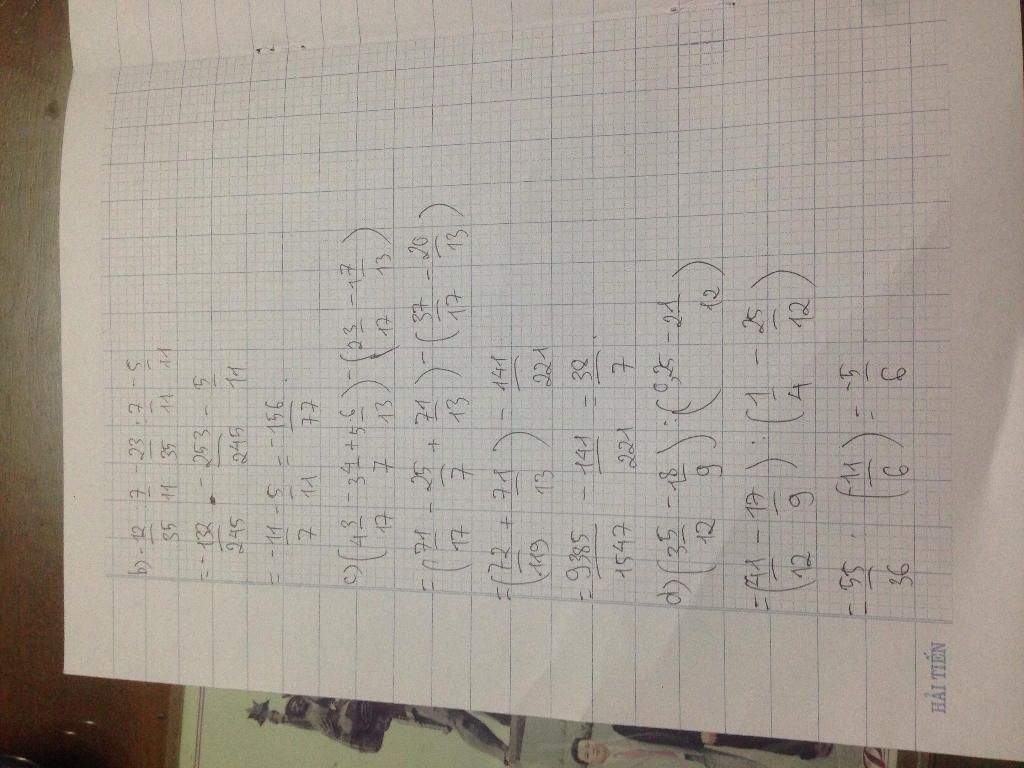 b) -12/35 : 7/11 - 23/35 : 7/11 - 5/11
= -132/245 - 253/245 - 5/11
= -11/7 - 5/11 = -156/77
c) (4 3/17 - 3 4/7 + 5 6/13) - (2 3/17 - 1 7/13)
= (71/17 - 25/7 + 71/13) - (37/17 - 20/13)
= (72/119 + 71/13) - 141/221
= 9385/1547 - 141/221 = 38/7
d) (3 5/12 - 1 8/9) : (0,25 - 2 1/12)
= (41/12 - 17/9) : (1/4 - 25/12)
= 55/36 : (11/6) = -5/6
HẢI TIẾN